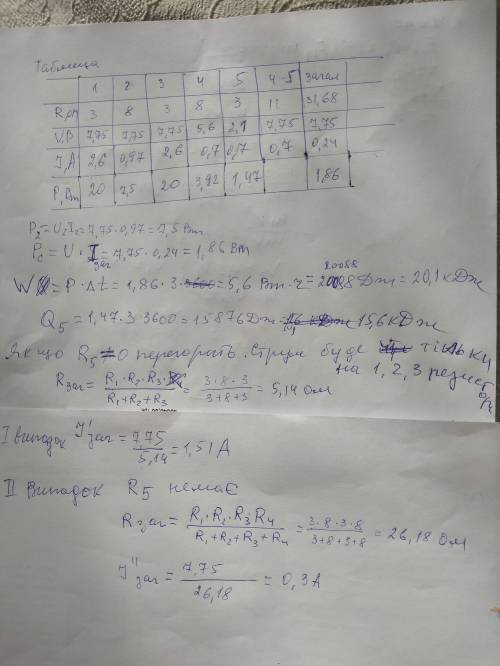 Таблица
1 2 3 4 5 4-5 загал
R,Ом 3 8 3 8 3 11 31,68
U,В 7,75 7,75 7,75 5,6 2,1 7,75 7,75
I,А 2,6 0,97 2,6 0,7 0,7 0,7 0,24
P,Вт 20 7,5 20 3,92 1,47 1,86
P₂=U₂I₂=7,75·0,97=7,5 Вт
Pc = U · Iзаг=7,75·0,24=1,86 Вт
W = P·Δt = 1,86·3 = 5,6 Вт·ч = 20088 Дж = 20,1 кДж
Q₅ = 1,47·3·3600=15876 Дж = 15,6 кДж
Якщо R₅ = 0 перегорить. Струм буде тільки
на 1, 2, 3 резист
Rзаг = R₁·R₂·R₃ / R₁+R₂+R₃ = 3·8·3 / 3+8+3 = 5,14 Ом
I випадок I'заг = 7,75 / 5,14 = 1,51 А
II Випадок R₅ немає
Rзаг = R₁·R₂·R₃·R₄ / R₁+R₂+R₃+R₄ = 3·8·3·8 / 3+8+3+8 = 26,18 Ом
I''заг = 7,75 / 26,18 = 0,3 А